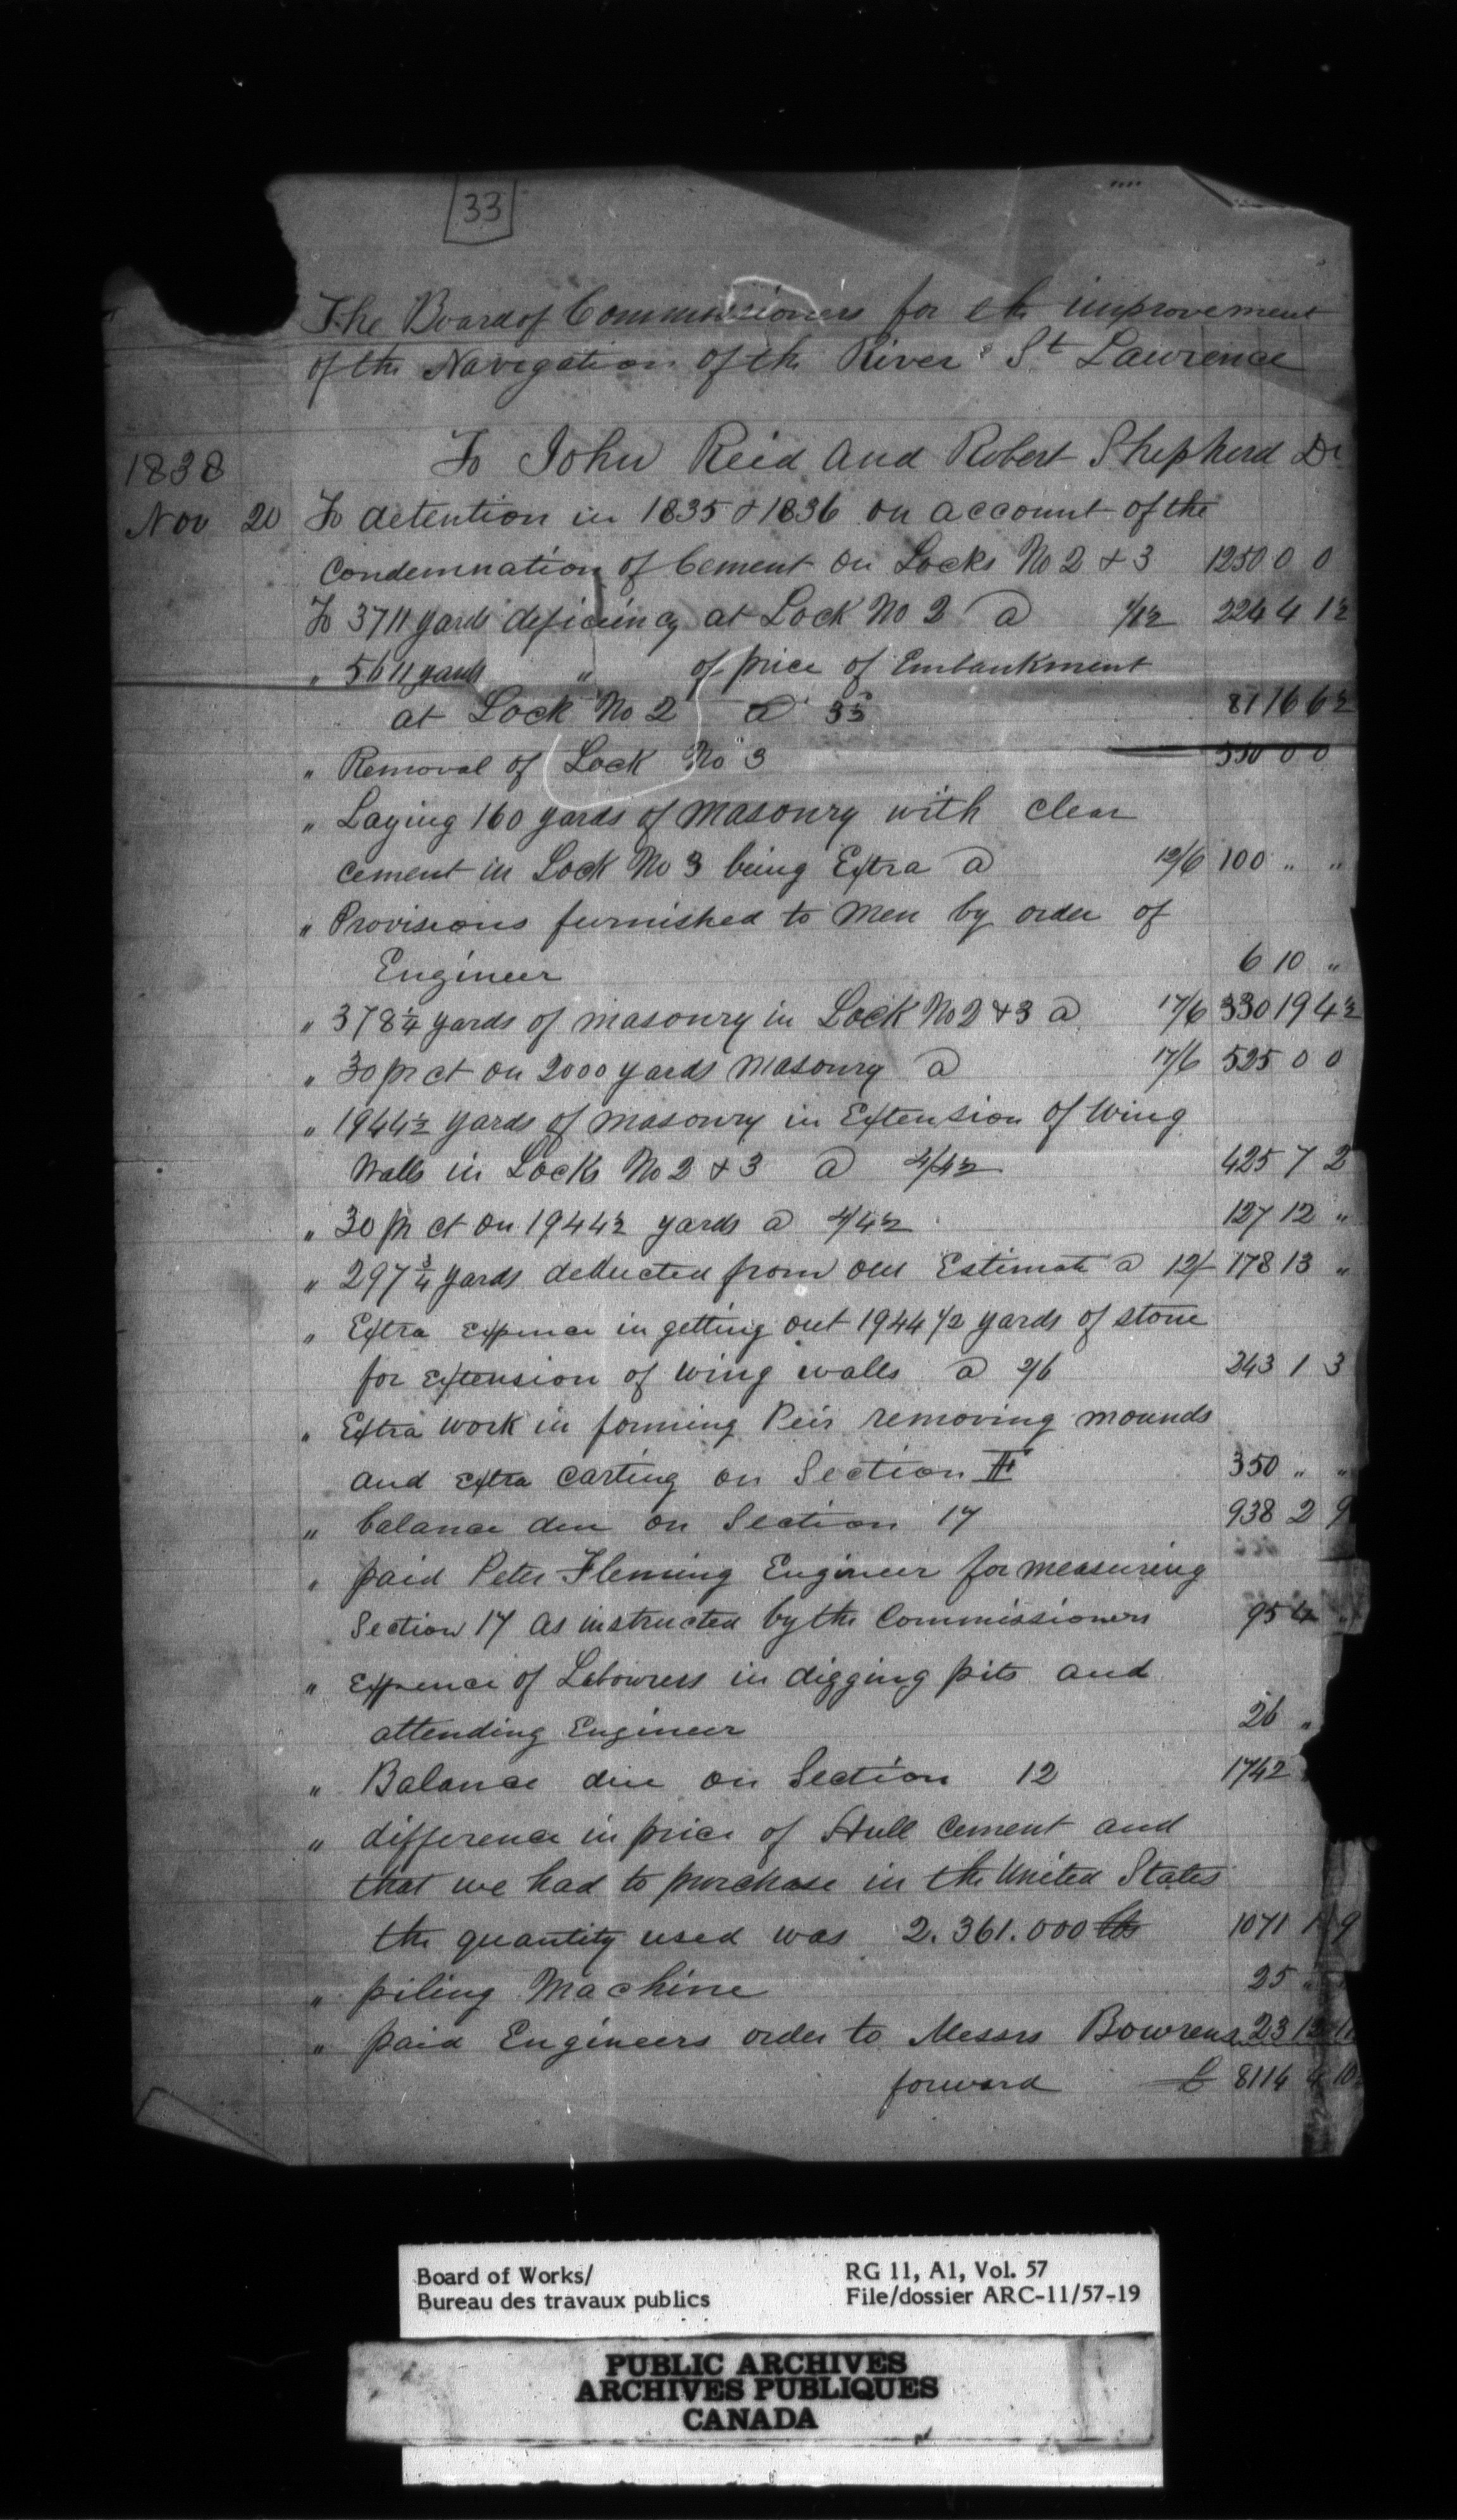 33
The Board of Commissioners for the improvement
of the Navigation of the River St Lawrence
To John Reid and Robert Shepherd Dr
1838
Nov 20 To detention in 1835 & 1836 on account of the
Condemnation of Cement on Locks No 2 & 3 1250 0 0
To 3711 yards deficiency at Lock No 2 @ 224 4 1½
" 5611 yards " of price of Embankment
at Lock No 2 @ 3½ 81 16 6½
" Removal of Lock No 3 350 0 0
" Laying 160 yards of masonry with clear
cement in Lock No 3 being Extra @ 12/6 100 " "
" Provisions furnished to Men by order of
Engineer 6 10 "
" 378¼ yards of masonry in Lock No 2 & 3 @ 17/6 330 19 4½
" 30 pr ct on 2000 yards Masonry @ 17/6 525 0 0
" 1944½ yards of masonry in Extension of Wing
Walls in Locks No 2 & 3 @ 4/4½ 425 7 2
" 30 pr ct on 1944½ yards @ 4/4½ 127 12 "
" 297¾ yards deducted from our Estimate @ 12/ 178 13 "
" Extra Expence in getting out 1944 1/2 yards of stone
for extension of wing walls @ 2/6 243 1 3
" Extra work in forming Peir removing mounds
and extra carting on Section 350 " "
" balance due on Section 17 938 2 9
" paid Peter Fleming Engineer for measuring
Section 17 as instructed by the Commissioners 95 4 "
" Expence of Labourers in digging pits and
attending Engineer 26 "
" Balance due on Section 12 1742
" difference in price of Hull Cement and
that we had to purchase in the United States
the quantity used was 2.361.000 lbs 1071 9
" piling Machine 25 "
" paid Engineers order to Messrs Bowrens 23
forward £ 8114 10
Board of Works/
Bureau des travaux publics
RG 11, A1, Vol. 57
File/dossier ARC-11/57-19
PUBLIC ARCHIVES
ARCHIVES PUBLIQUES
CANADA